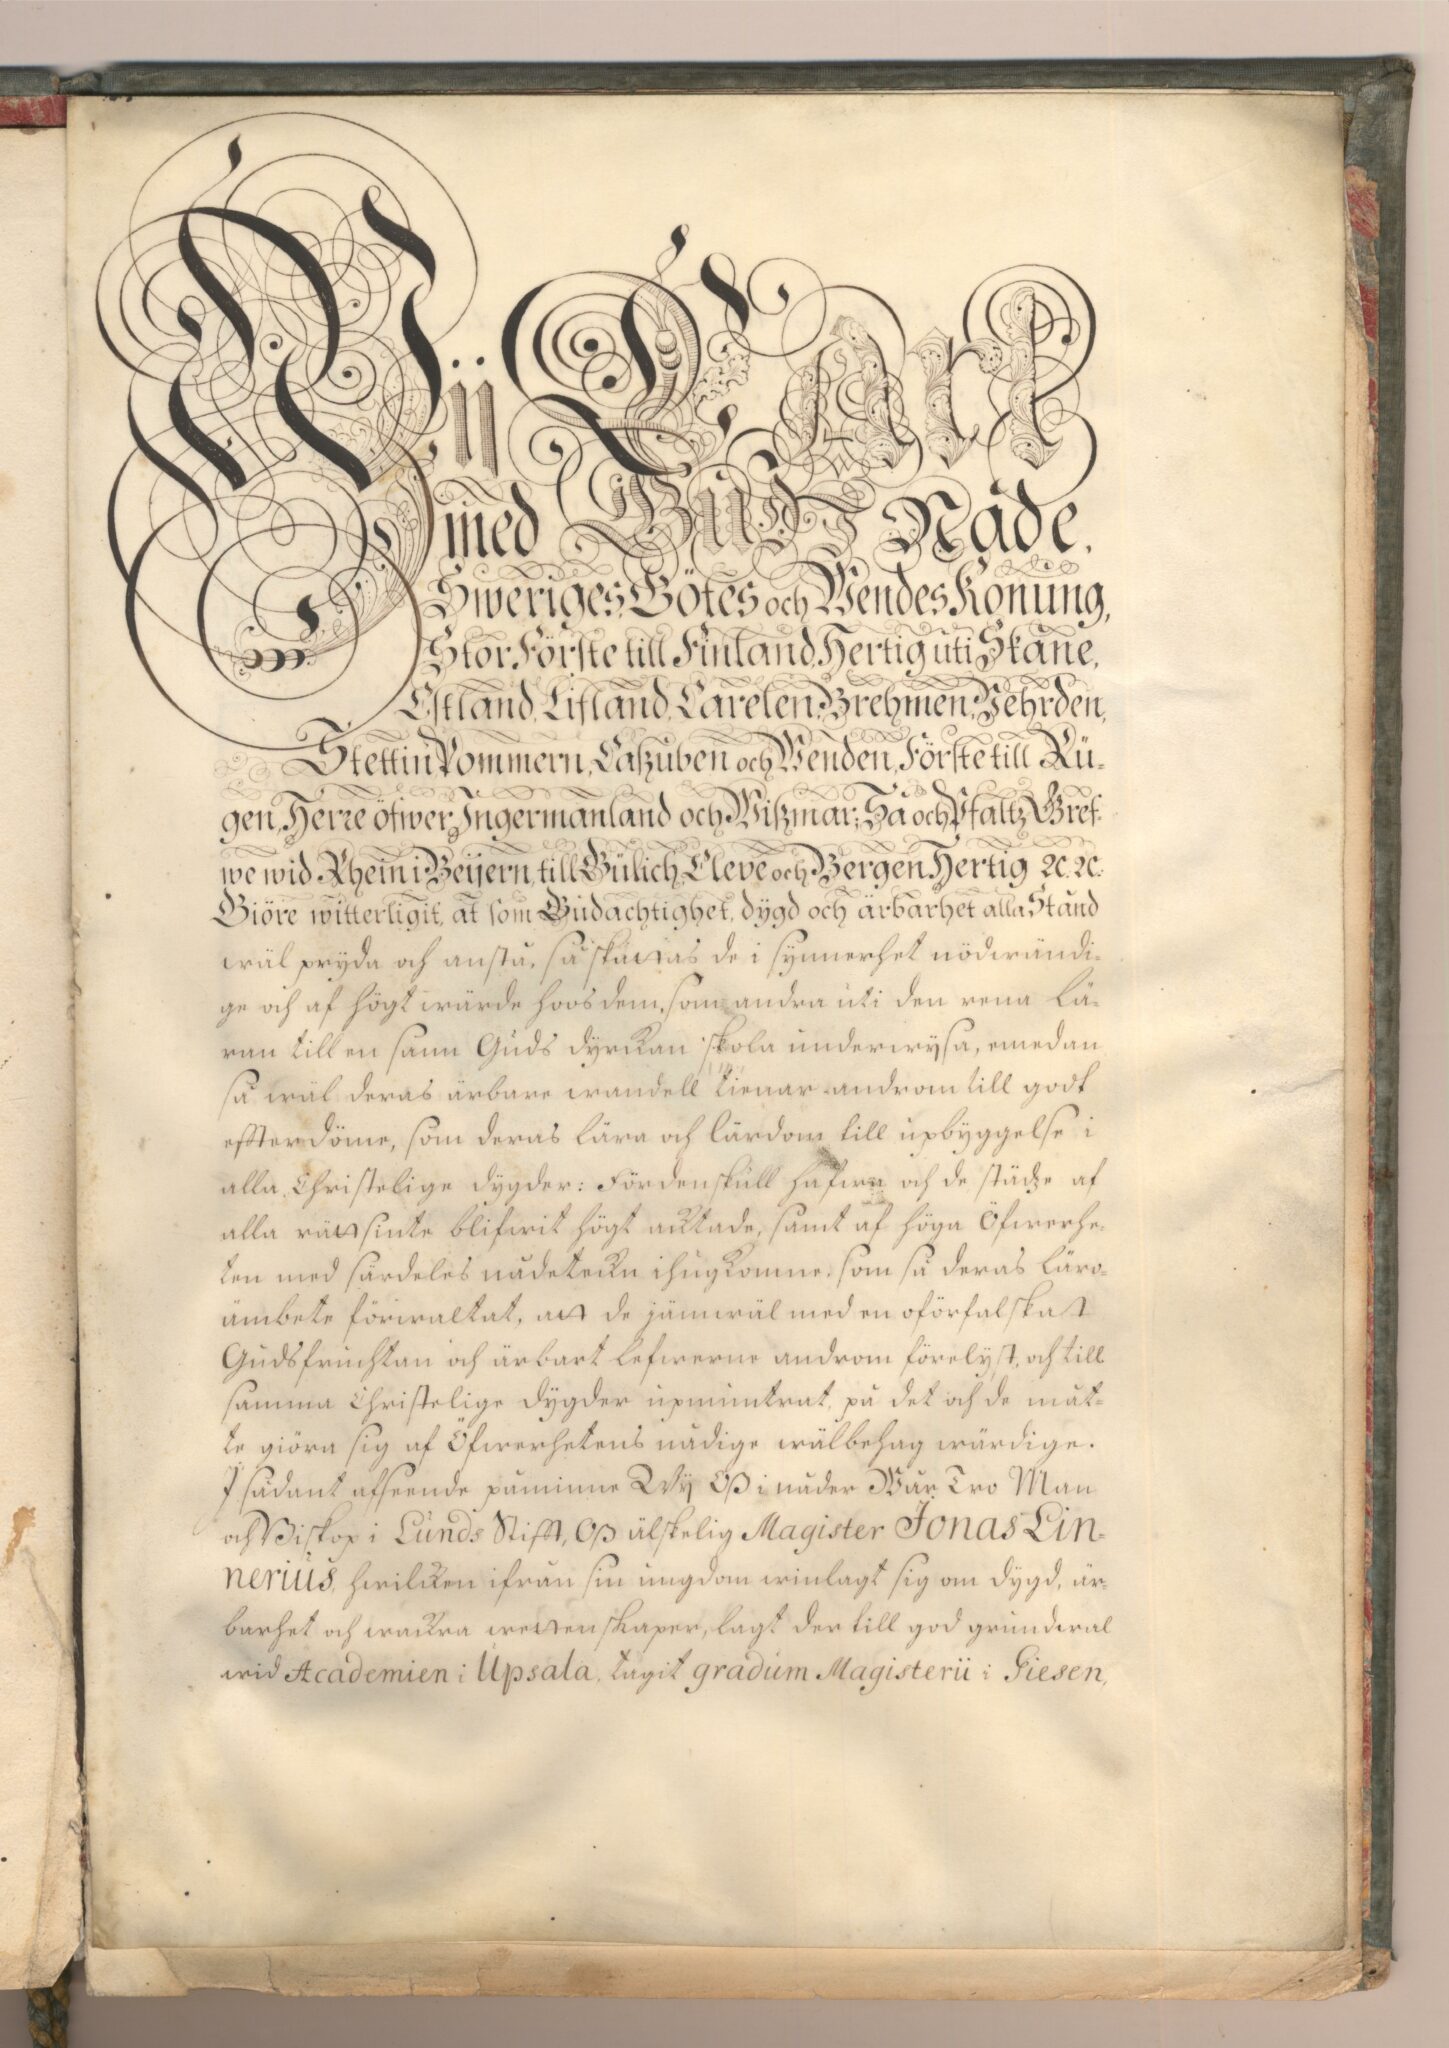 Wii Carl
med Gudz Nåde,
Sweriges, Götes och Wendes Konung,
Stor Förste till Finland, Hertig uti Skåne,
Estland, Lifland, Carelen, Brehmen, Vehrden,
Stettin Pommern, Caßuben och Wenden, Förste till Rü-
gen, Herre öfwer Ingermanland och Wißmar; Så och Pfaltz Gref-
we wid Rhein i Beijern, till Gülich, Cleve och Bergen Hertig 2c. 2c.
Giöre witterligit, at som Gudachtighet, dygd och ärbarhet alla Stånd
wäl pryda och anstå, så skattas de i synnerhet nödwändi-
ge och af högt wärde hoos dem, som andra uti den rena lä-
ran till en sann Guds dyrckan skola underwysa, emedan
så wäl deras ärbare wandell tienar androm till godt
effterdöme, som deras lära och lärdom till upbyggelse i
alla Christelige dygder: Fördenskull hafwa och de städze af
alla rättsinte blifwit högt acktade, samt af höga Öfwerhe-
ten med särdeles nådetekn ihugkomne, som så deras läro-
ämbete förwaltat, att de jämwäl med en oförfalskat
Gudsfruchtan och ärbart lefwerne androm förelyst, och till
samma Christelige dygder upmuntrat, på det och de måt-
te giöra sig af Öfwerhetens nådige wälbehag wärdige.
I sådant afseende påminne Wy Oß i nåder Wår Tro Man
och Biskop i Lunds Stifft, Oß älskelig Magister Jonas Lin-
nerius, hwilcken ifrån sin ungdom winlagt sig om dygd, är-
barhet och wackra wettenskaper, lagt der till god grundwal
wid Academien i Upsala, tagit gradum Magisterii i Giesen,